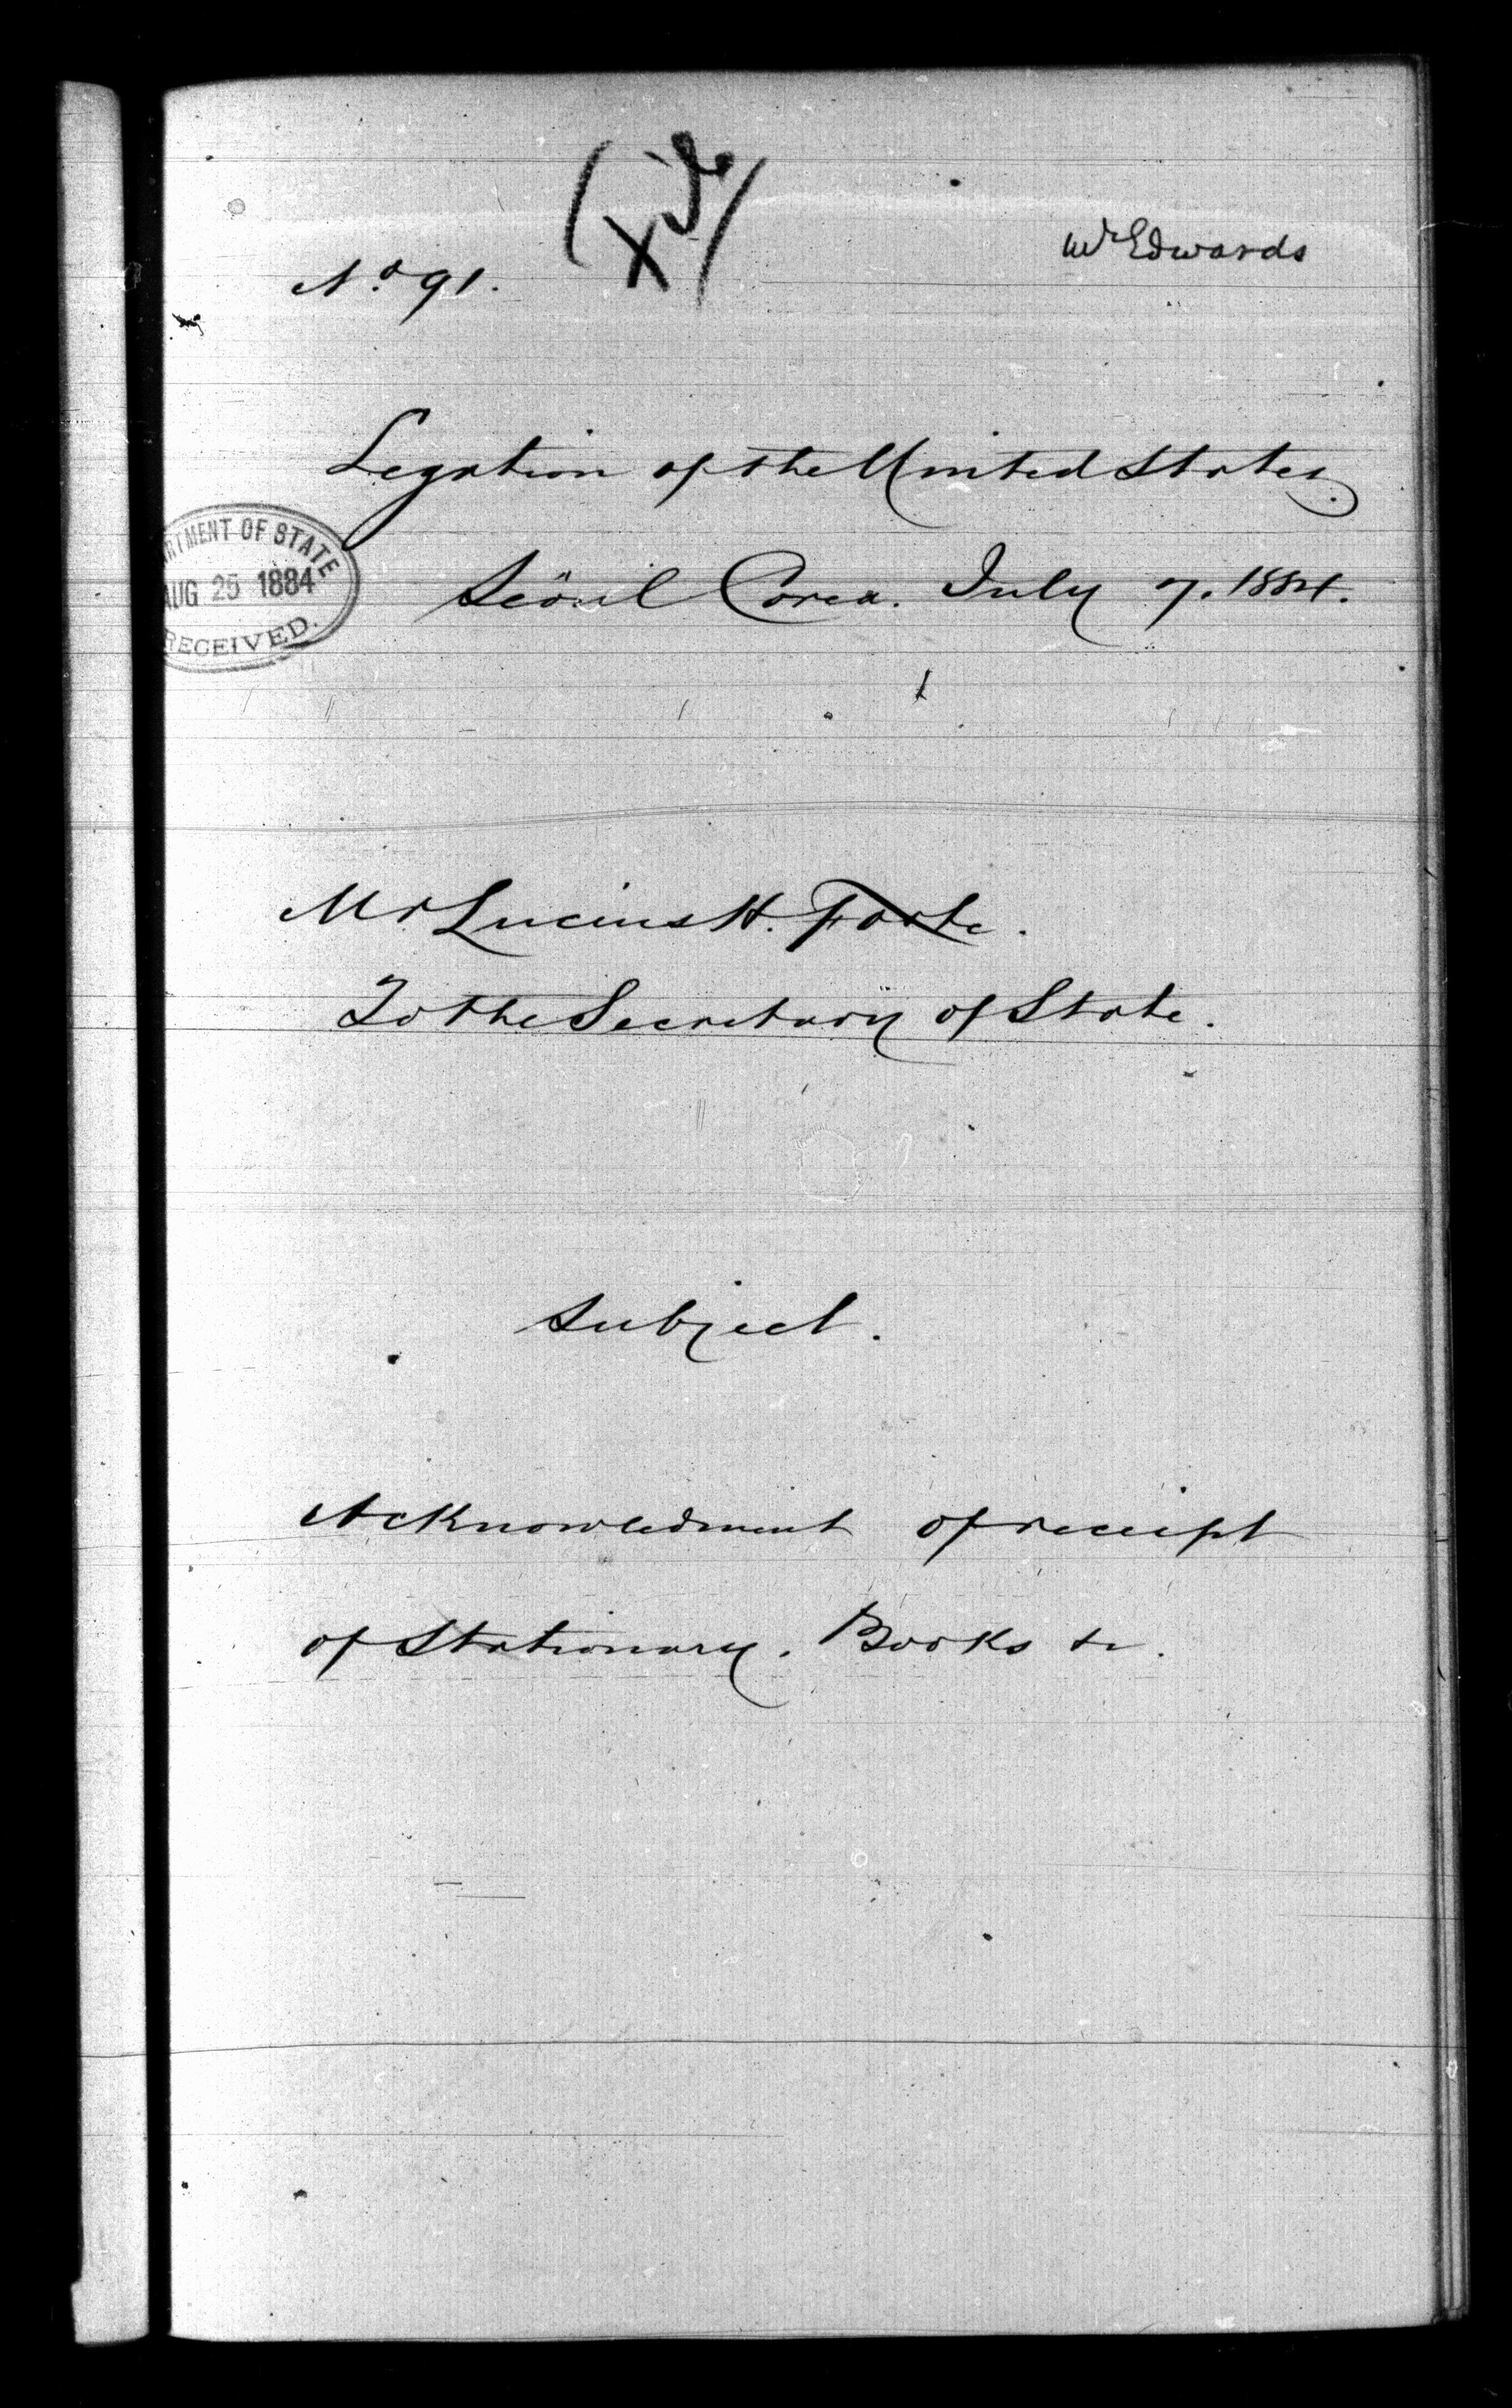 Mr Edwards
No 91.
Legation of the United States.
Seöul Corea. July 7. 1884.
RTMENT OF STATE
AUG 25 1884
RECEIVED.
Mr Lucius H. Foote.
To the Secretary of State.
Subject.
Acknowledment of receipt
of Stationary, Books &c.